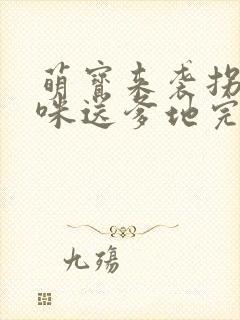 萌寳来袭拐
咪送爹地完
九殇